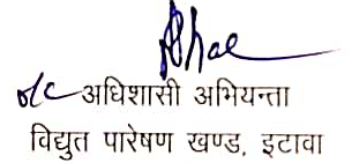 o/c अधिशासी अभियन्ता
विद्युत पारेषण खण्ड, इटावा